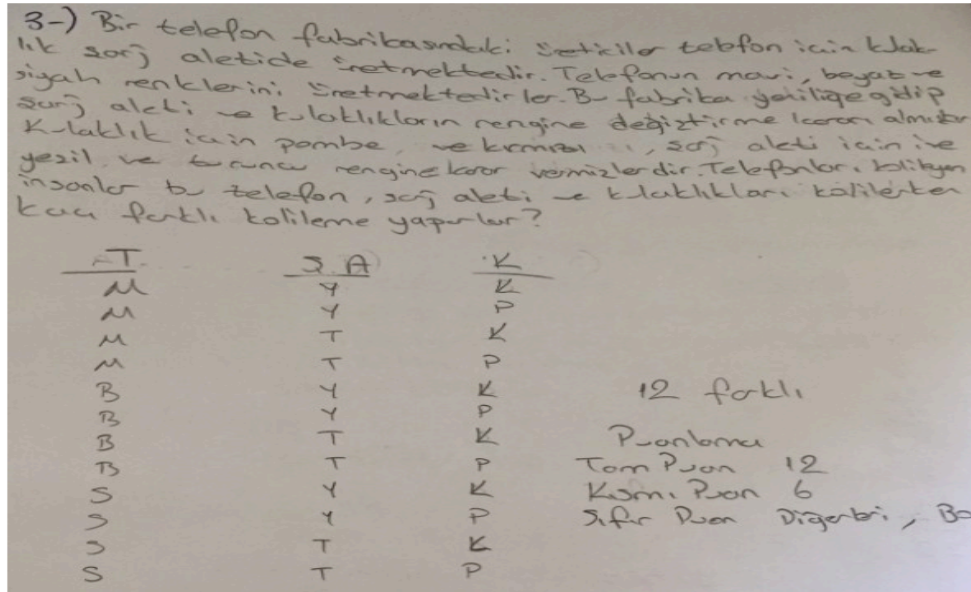 3-) Bir telefon fabrikasındaki üreticiler telefon için kulak-
lık şarj aletide üretmektedir. Telefonun mavi, beyaz ve
siyah renklerini üretmektedirler. Bu fabrika yeniliğe gidip
şarj aleti ve kulaklıkların rengine değiştirme kararı almıştır
Kulaklık için pembe, ve kırmızı, şarj aleti için ise
yeşil ve turuncu rengine karar vermişlerdir. Telefonları
insanlar bu telefon, şarj aleti ve kulaklıkları kolilerken
kaç farklı kolileme yaparlar?
T Ş.A K
M Y K
M Y P
M T K
M T P
B Y K 12 farklı
B Y P
B T K Puanlama
B T P Tam Puan 12
S Y K Kısmi Puan 6
S Y P Sıfır Puan Diğerleri, Bo
S T K
S T P